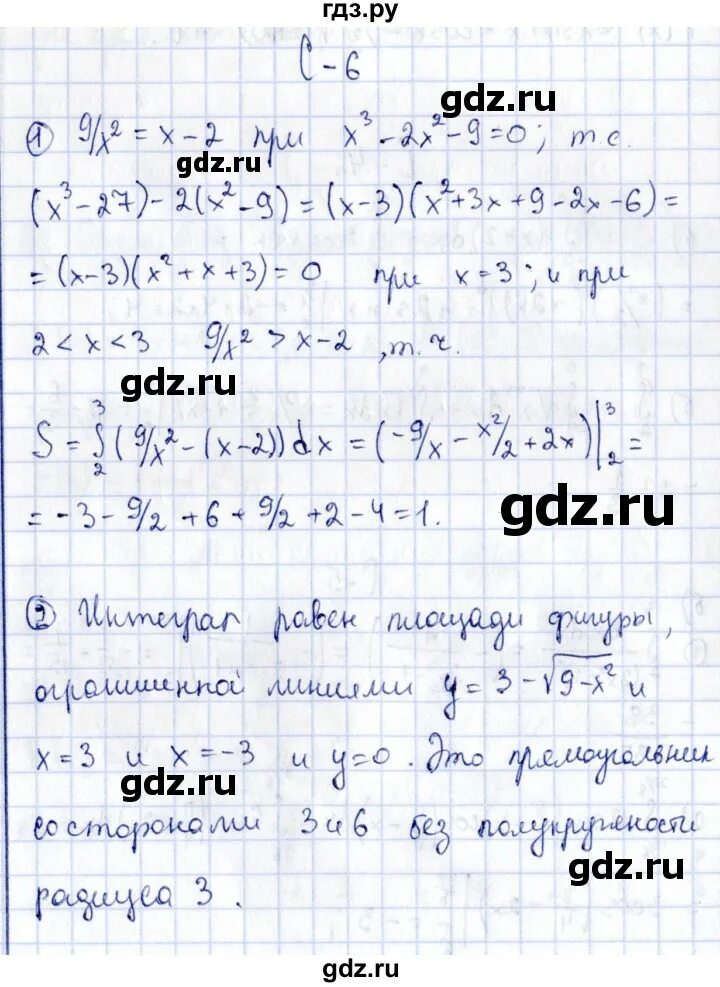 гдз.ру
С-6
① 9/x² = x-2 при x³-2x²-9=0; т.е.
gdz.ru
gdz.ru
(x³-27)-2(x²-9) = (x-3)(x²+3x+9-2x-6)=
= (x-3)(x²+x+3)=0 при x=3; и при
2<x<3 9/x² > x-2, т.ч.
gdz.ru
S = ∫₂³ (9/x² - (x-2))dx = (-9/x - x²/2 + 2x)|₂³ =
= -3 - 9/2 + 6 + 9/2 + 2 - 4 = 1.
gdz.ru
② Интеграл равен площади фигуры,
ограниченной линиями y = 3-√(9-x²) и
x=3 и x=-3 и y=0. Это прямоугольник
gdz.ru
со сторонами 3 и 6 без полукружности
gdz.ru
радиуса 3.
gdz.ru